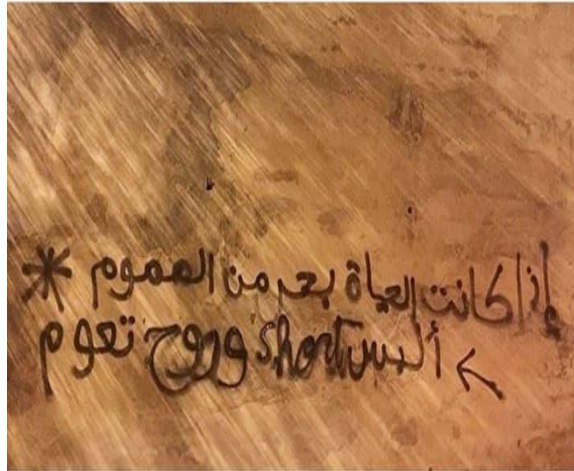 إذا كانت الحياة بحر من الهموم *
ألبس short وروح تعوم